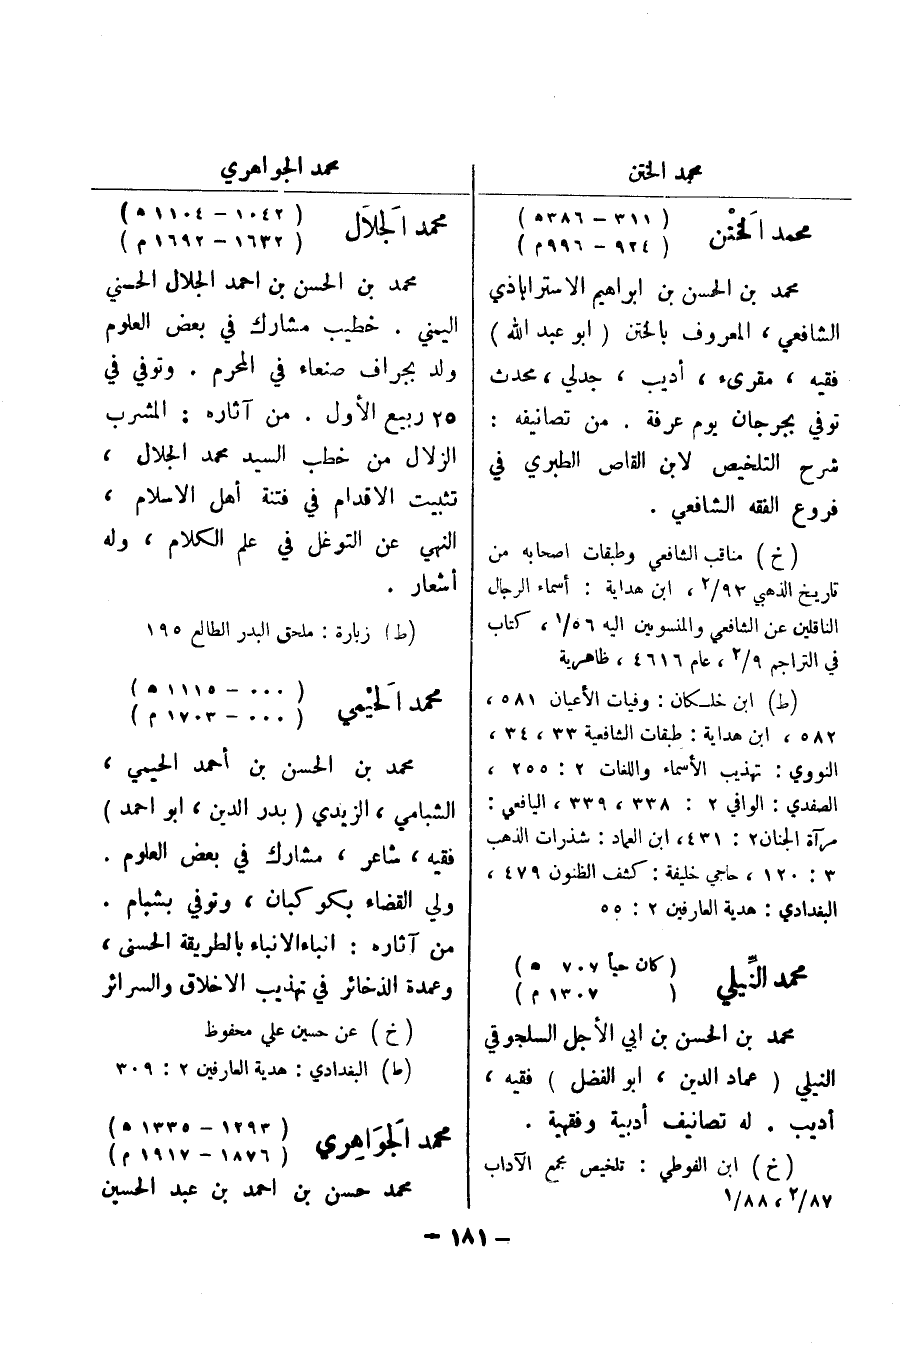 محمد الختن
محمد الخَتْن
( ٣١١ – ٣٨٦ ه )
( ٩٢٤ – ٩٩٦ م )
محمد بن الحسن بن ابراهيم الاستراباذي
الشافعي ، المعروف بالختن ( ابو عبد الله )
فقيه ، مقرىء ، أديب ، جدلي ، محدث
توفي بجرجان يوم عرفة . من تصانيفه :
شرح التلخيص لابن القاص الطبري في
فروع الفقه الشافعي .
( خ ) مناقب الشافعي وطبقات اصحابه من
تاريخ الذهبي ٩٣/٢ ، ابن هداية : أسماء الرجال
الناقلين عن الشافعي والمنسوبين اليه ٥٦/١ ، كتاب
في التراجم ٩/٢ ، عام ٤٦١٦ ، ظاهرية
(ط) ابن خلكان : وفيات الأعيان ٥٨١ ،
٥٨٢ ، ابن هداية : طبقات الشافعية ٣٣ ، ٣٤ ،
النووي : تهذيب الأسماء واللغات ٢ : ٢٥٥ ،
الصفدي : الوافي ٢ : ٣٣٨ ، ٣٣٩ ، اليافعي :
مرآة الجنان ٢ : ٤٣١ ، ابن العماد : شذرات الذهب
٣ : ١٢٠ ، حاجي خليفة : كشف الظنون ٤٧٩ ،
البغدادي : هدية العارفين ٢ : ٥٥
محمد النِّيلي
( كان حياً ٧٠٧ ه )
( ١٣٠٧ م )
محمد بن الحسن بن ابي الأجل السلجوقي
النيلي ( عماد الدين ، ابو الفضل ) فقيه ،
أديب . له تصانيف أدبية وفقهية .
( خ ) ابن الفوطي : تلخيص مجمع الآداب
٨٧/٢ ، ٨٨/١
محمد الجواهري
محمد الجَلال
( ١٠٤٢ – ١١٠٤ ه )
( ١٦٣٢ – ١٦٩٢ م )
محمد بن الحسن بن احمد الجلال الحسني
اليمني . خطيب مشارك في بعض العلوم
ولد بجراف صنعاء في المحرم . وتوفي في
٢٥ ربيع الأول . من آثاره : المشرب
الزلال من خطب السيد محمد الجلال ،
تثبيت الاقدام في فتنة أهل الاسلام ،
النهي عن التوغل في علم الكلام ، وله
أشعار .
(ط) زبارة : ملحق البدر الطالع ١٩٥
محمد الحَيْمي
( ٠٠٠ – ١١١٥ ه )
( ٠٠٠ – ١٧٠٣ م )
محمد بن الحسن بن أحمد الحيمي ،
الشبامي ، الزيدي ( بدر الدين ، ابو احمد )
فقيه ، شاعر ، مشارك في بعض العلوم .
ولي القضاء بكوكبان ، وتوفي بشبام .
من آثاره : انباء الانباء بالطريقة الحسنى ،
وعمدة الذخائر في تهذيب الاخلاق والسرائر
( خ ) عن حسين علي محفوظ
(ط) البغدادي : هدية العارفين ٢ : ٣٠٩
محمد الجَوَاهِري
( ١٢٩٣ – ١٣٣٥ ه )
( ١٨٧٦ – ١٩١٧ م )
محمد حسن بن احمد بن عبد الحسين
– ١٨١ –